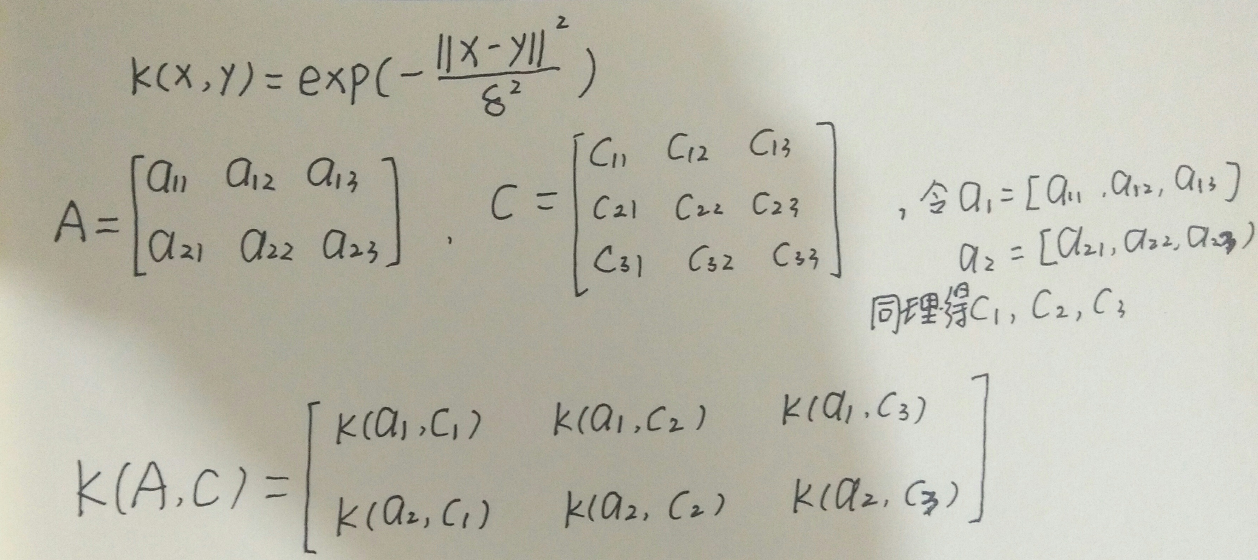 k(x,y)=exp(-||x-y||²/δ²)
A=[a₁₁ a₁₂ a₁₃
a₂₁ a₂₂ a₂₃] , C=[C₁₁ C₁₂ C₁₃
C₂₁ C₂₂ C₂₃
C₃₁ C₃₂ C₃₃] , 令a₁=[a₁₁,a₁₂,a₁₃]
a₂=[a₂₁,a₂₂,a₂₃)
同理得C₁,C₂,C₃
K(A,C)=[k(a₁,C₁) k(a₁,C₂) k(a₁,C₃)
k(a₂,C₁) k(a₂,C₂) k(a₂,C₃)]